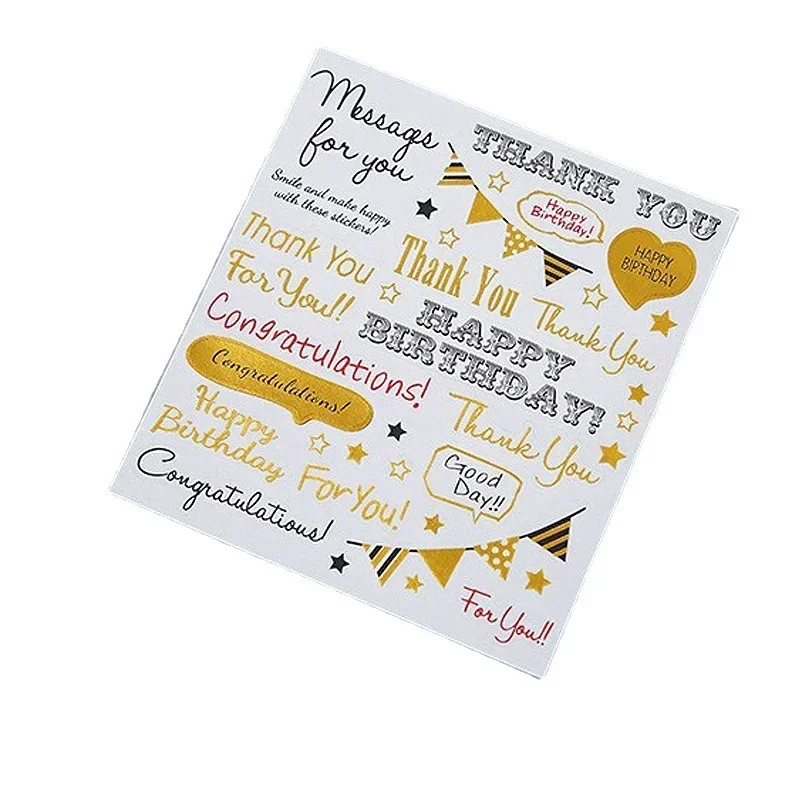 Messages
for you
Smile and make happy
with these stickers!
THANK YOU
Happy
Birthday!
HAPPY
BIRTHDAY
Thank You
For You!!
Thank You
Thank You
HAPPY
BIRTHDAY!
Congratulations!
Congratulations!
Thank You
Happy
Birthday
For You!
Good
Day!!
Congratulations!
For You!!